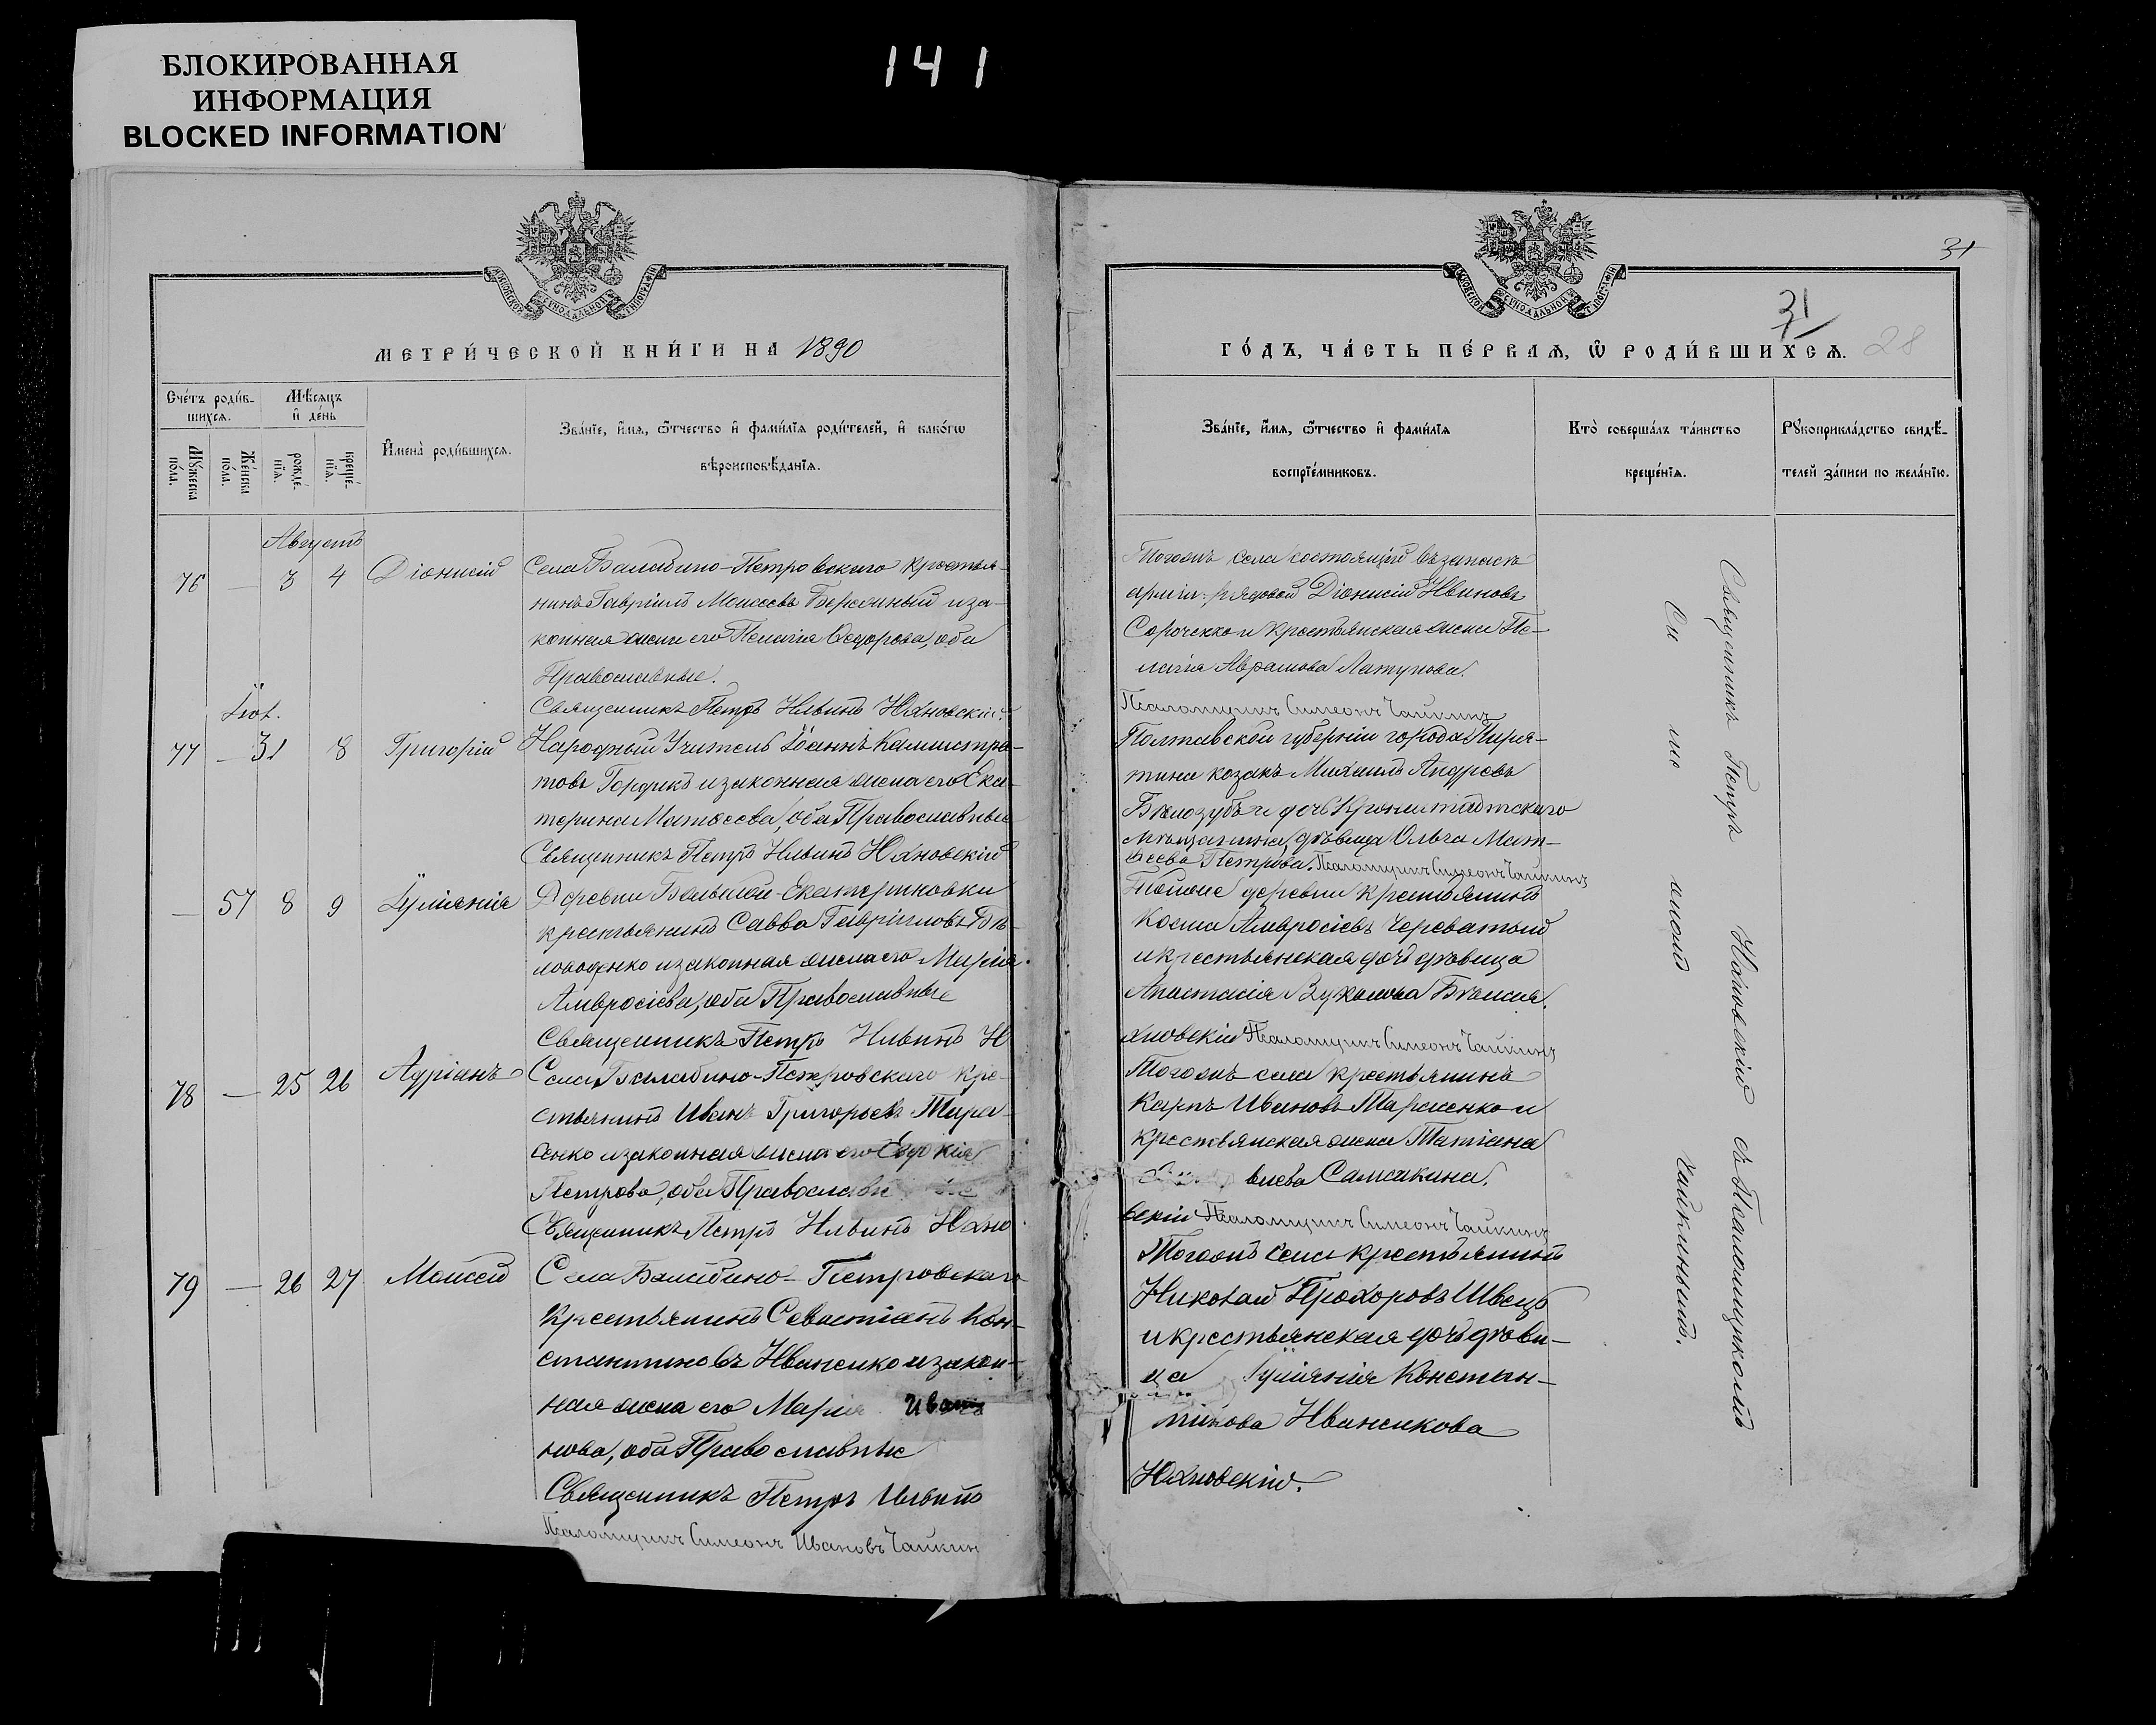 БЛОКИРОВАННАЯ
ИНФОРМАЦИЯ
BLOCKED INFORMATION
141
МОСКОВСКОЙ СѴНОДАЛЬНОЙ ТИПОГРАФІИ
МЕТРИ́ЧЕСКОЙ КНИ́ГИ НА 1890
Сче́тъ роди́в-
шихсѧ.
Мѣ́сѧцъ
и҆ де́нь
Мꙋ́жеска
по́ла.
Же́нска
по́ла.
рожде́-
нїѧ.
креще́-
нїѧ.
И҆мена̀ роди́вшихсѧ.
Зва́нїе, и҆́мѧ, ѻ҆́тчество и҆ фами́лїѧ роди́телей, и҆ како́гѡ
вѣроисповѣ́данїѧ.
Августъ
76 — 3 4 Діонисій Села Балабино-Петровскаго крестья-
нинъ Гавріилъ Моисеевъ и за-
конная жена его Пелагія Ѳедорова, оба
Православные.
Священникъ Петръ Ильинъ Юхновскій.
Іюл.
77 — 31 8 Григорій Народный Учитель Іоаннъ Каллистра-
товъ Гордикъ и законная жена его Ека-
терина Матѳеева, оба Православные
Священникъ Петръ Ильинъ Юхновскій
— 57 8 9 Іуліанія Деревни Екатериновки
крестьянинъ Савва Гавріиловъ Бѣ-
ловоденко и законная жена его Марія
Амвросіева, оба Православные
Священникъ Петръ Ильинъ Ю
78 — 25 26 Адріанъ Села Балабино-Петровскаго кре-
стьянинъ Иванъ Григорьевъ Тара
сенко и законная жена его Евдокія
Петрова, оба Православные
Священникъ Петръ Ильинъ Юхно
79 — 26 27 Моисей Села Балабино-Петровскаго
крестьянинъ Севастіанъ Кон-
стантиновъ Иваненко и закон-
ная жена его Марія Иван
нова, оба Православные
Священникъ Петръ Ильинъ
Псаломщикъ Симеонъ Ивановъ Чайкин
31
31
28
МОСКОВСКОЙ СѴНОДАЛЬНОЙ ТИПОГРАФІИ
ГО́ДЪ, ЧА́СТЬ ПЕ́РВАѦ, Ѡ҆ РОДИ́ВШИХСѦ.
Зва́нїе, и҆́мѧ, ѻ҆́тчество и҆ фами́лїѧ
воспрїе́мниковъ.
Кто̀ соверша́лъ та́инство
креще́нїѧ.
Рꙋкоприкла́дство свидѣ́-
телей за́писи по жела́нїю.
Тогожъ села состоящій въ запасѣ
арміи рядовой Діонисій Ивановъ
Сороченко и крестьянская жена Пе-
лагія Аврамова Латунова.
Псаломщикъ Симеонъ Чайкинъ
Полтавской губерніи города Пиря-
тина козакъ Михаилъ Андреевъ
Бѣлозубъ и дочь Кронштадтскаго
мѣщанина, дѣвица Ольга Мат-
ѳеева Петрова. Псаломщикъ Симеонъ Чайкинъ
деревни крестьянинъ
Косма Амвросіевъ Череватый
и крестьянская дочь дѣвица
Анастасія Вуколова Бѣлая.
хновскій Псаломщикъ Симеонъ Чайкинъ
Тогожъ села крестьянинъ
Карпъ Ивановъ Тарасенко и
крестьянская жена Татіана
виева Самсикина.
вскій Псаломщикъ Симеонъ Чайкинъ
Тогожъ села крестьянинъ
Николай Прохоровъ Швецъ
и крестьянская дочь дѣви-
ца Іуліанія Констан-
тинова Иваненкова
Юхновскій.
Священникъ Петръ Юхновскій съ Псаломщикомъ
Си ме ономъ Чайкинымъ.